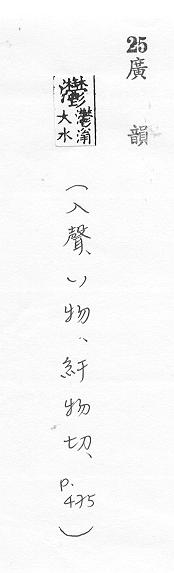 25 廣韻
灪 灪滃
大水
(入聲、八物、紆物切、p.475)